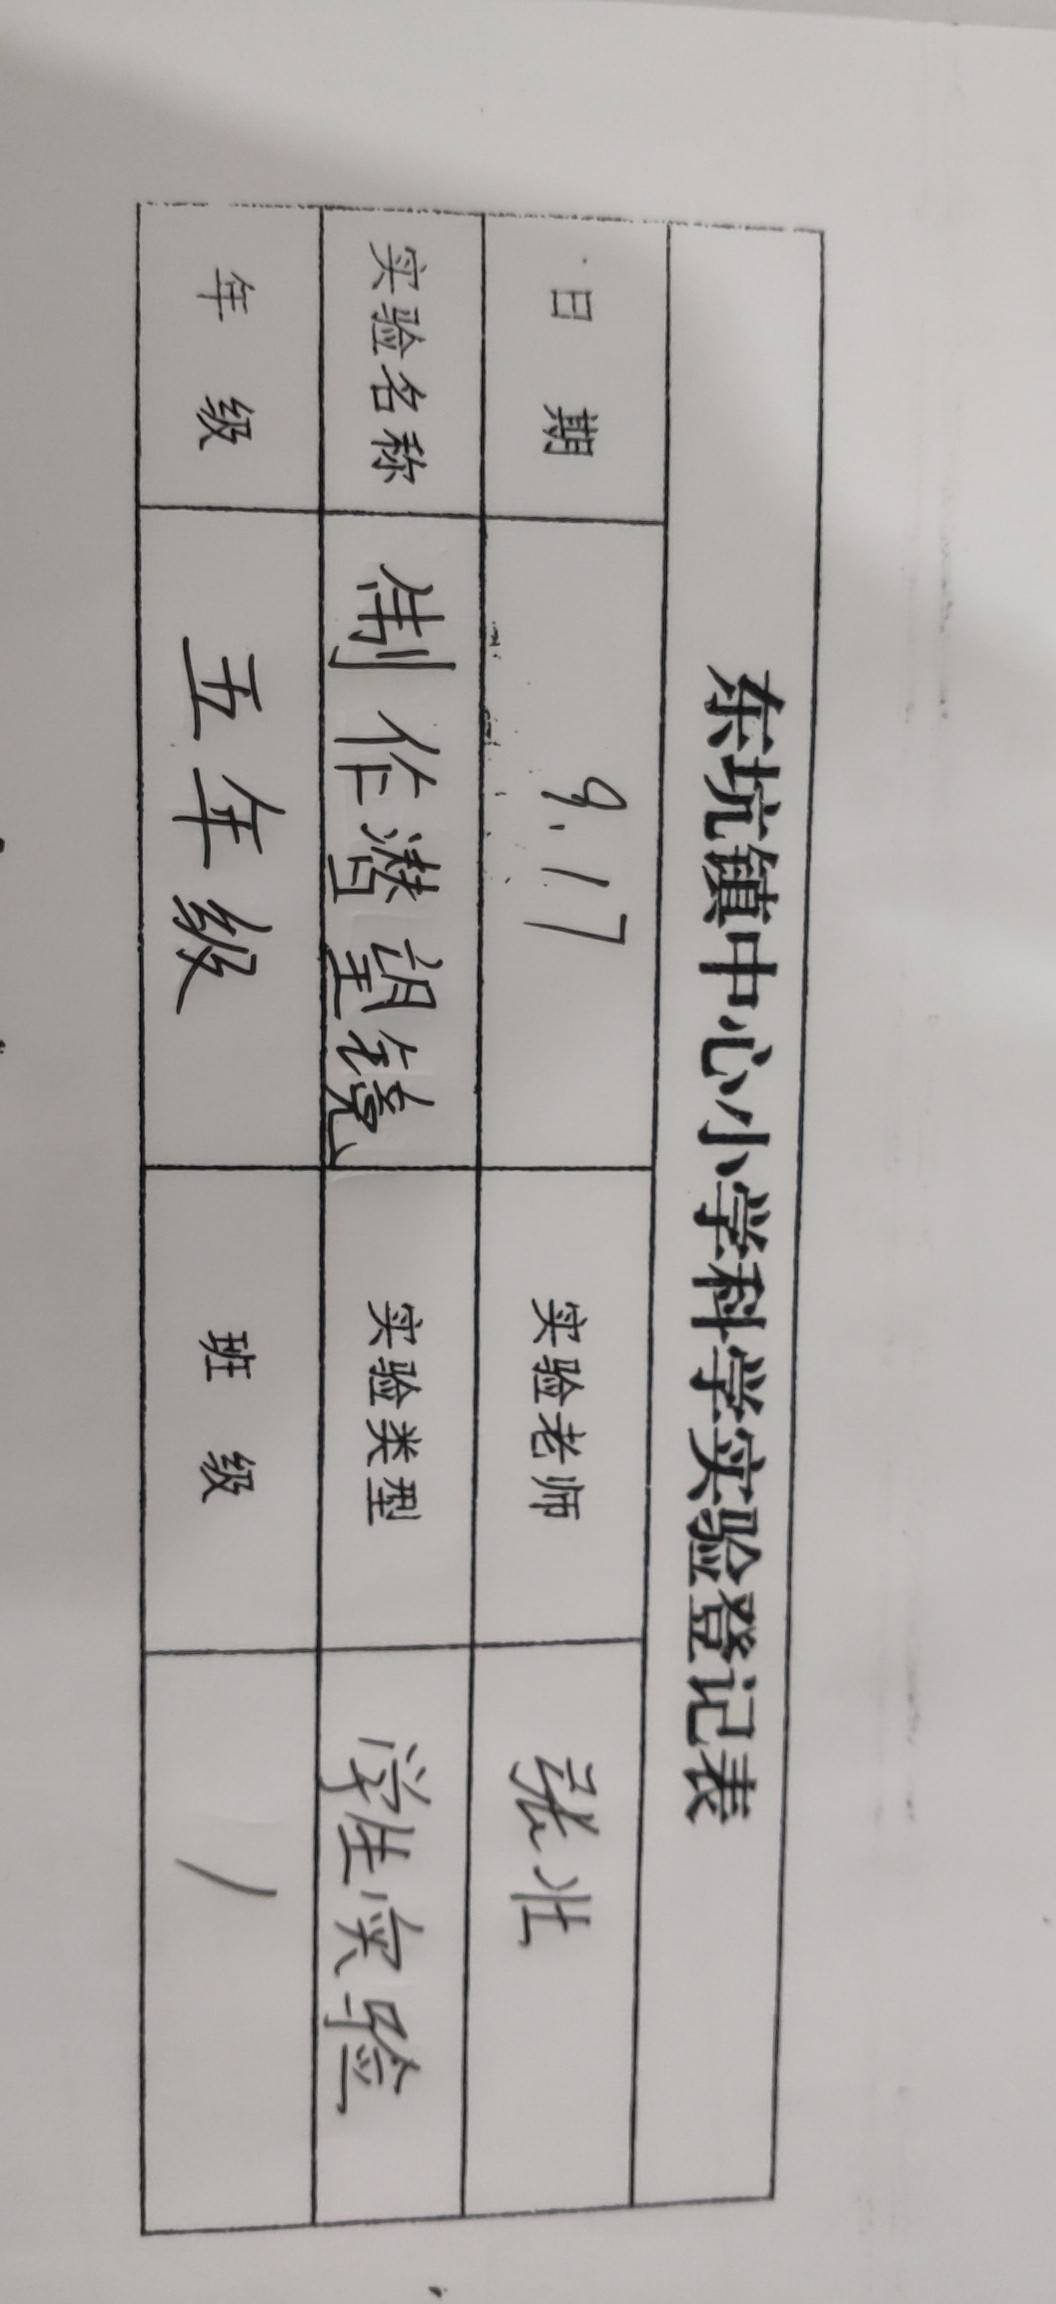 东坑镇中心小学科学实验登记表
日期 9.17 实验老师 张壮
实验名称 制作潜望镜 实验类型 学生实验
年级 五年级 班级 1